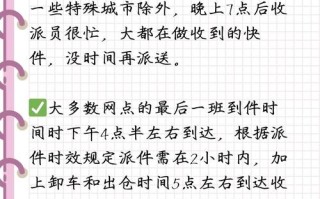 一些特殊城市除外，晚上7点后收
派员很忙，大都在做收到的快
件，没时间再派送。
✅大多数网点的最后一班到件时
间时下午4点半左右到达，根据派
件时效规定派件需在2小时内，加
上卸车和出仓时间5点左右到达收